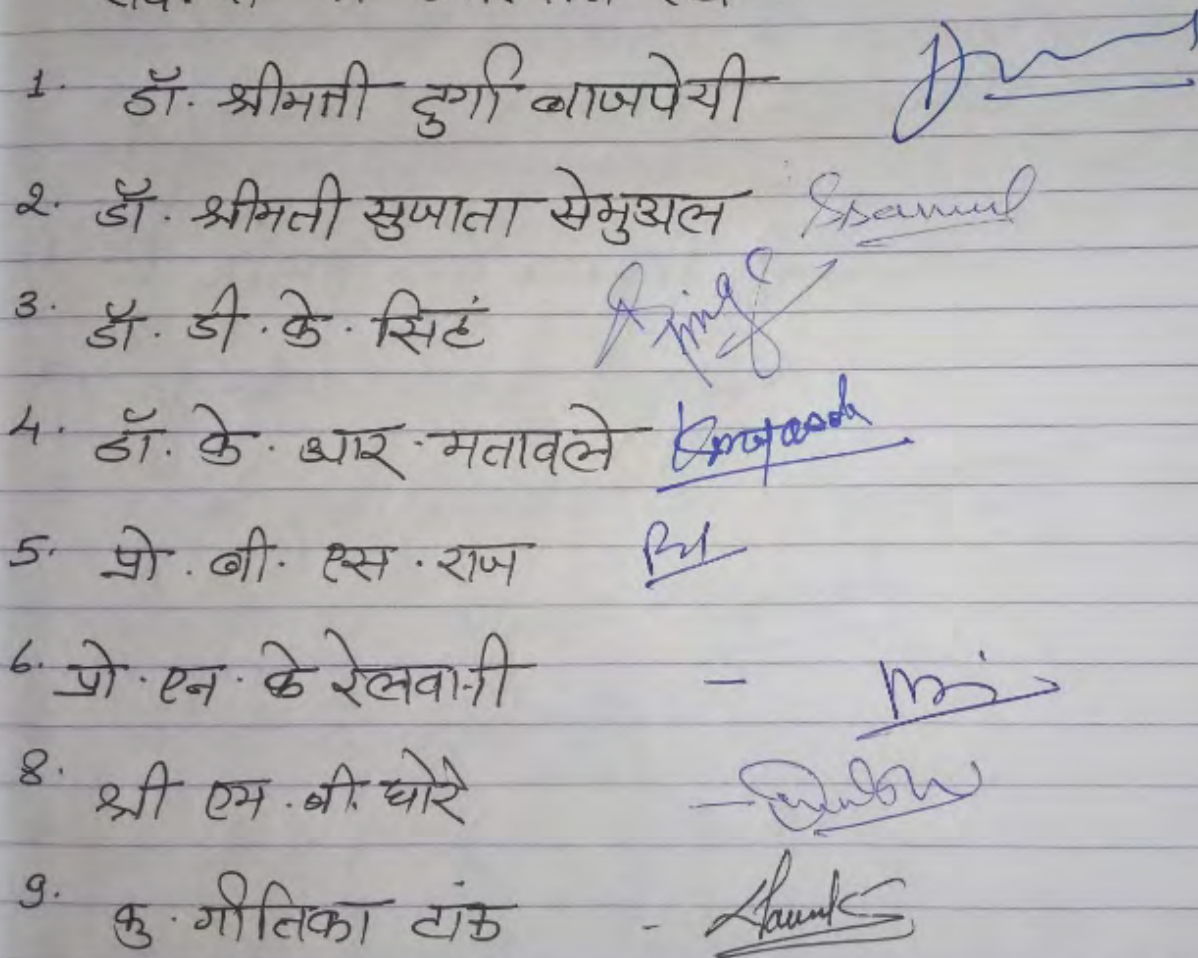 1. डॉ. श्रीमती दुर्गा बाजपेयी
2. डॉ. श्रीमती सुजाता सेमुअल Ssamuel
3. डॉ. डी. के. सिहं
4. डॉ. के. आर. मतावले
5. प्रो. बी. एस. राज
6. प्रो. एन. के रेलवानी -
8. श्री एम. बी. धोरे -
9. कु. गीतिका टांक -